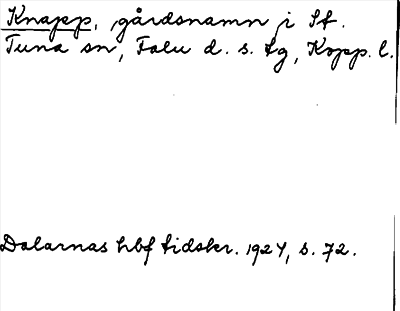 Knapp, gårdsnamn i St.
Tuna sn, Falu d. s. tg, Kopp. l.
Dalarnas hbf tidskr. 1924, s. 72.